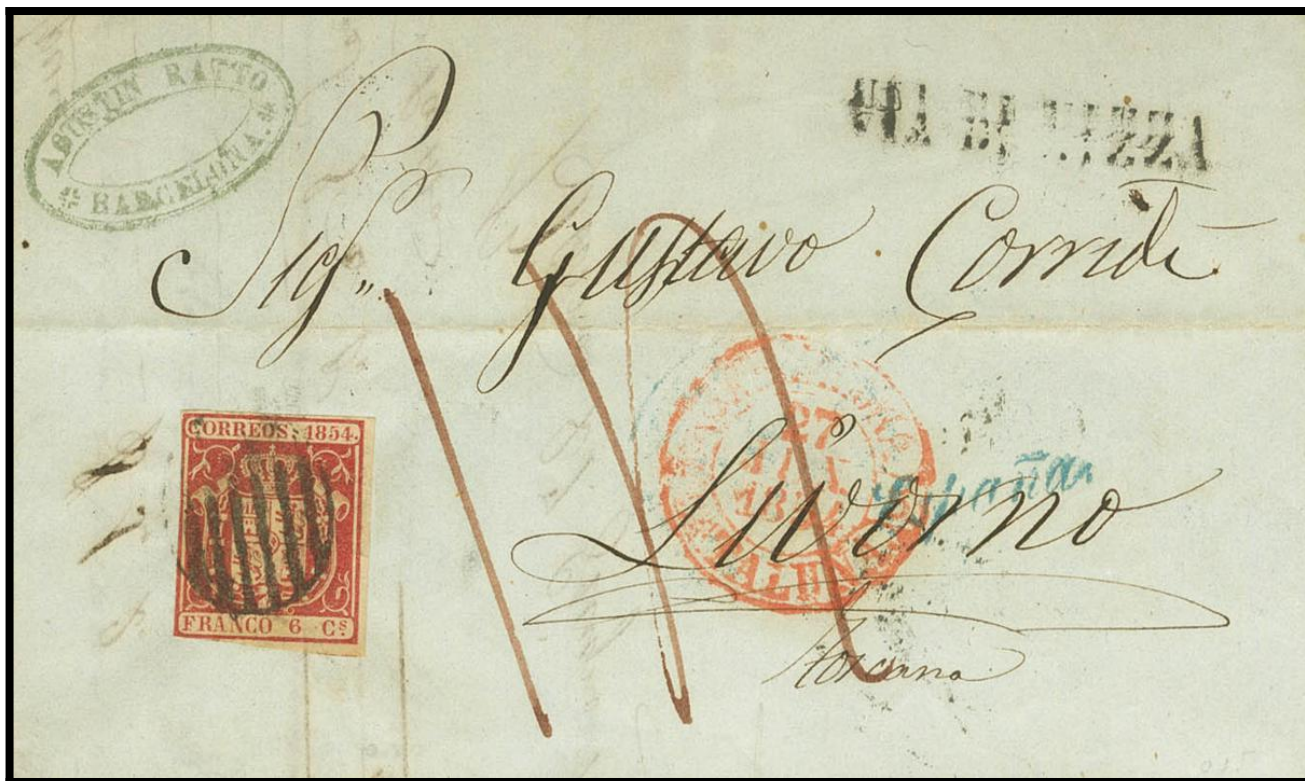 AGUSTIN RATTO
BARCELONA.
VIA DI NIZZA
Sigr. Gustavo Corridi
CORREOS. 1854.
FRANCO 6 Cs.
27
España.
Livorno
Toscana